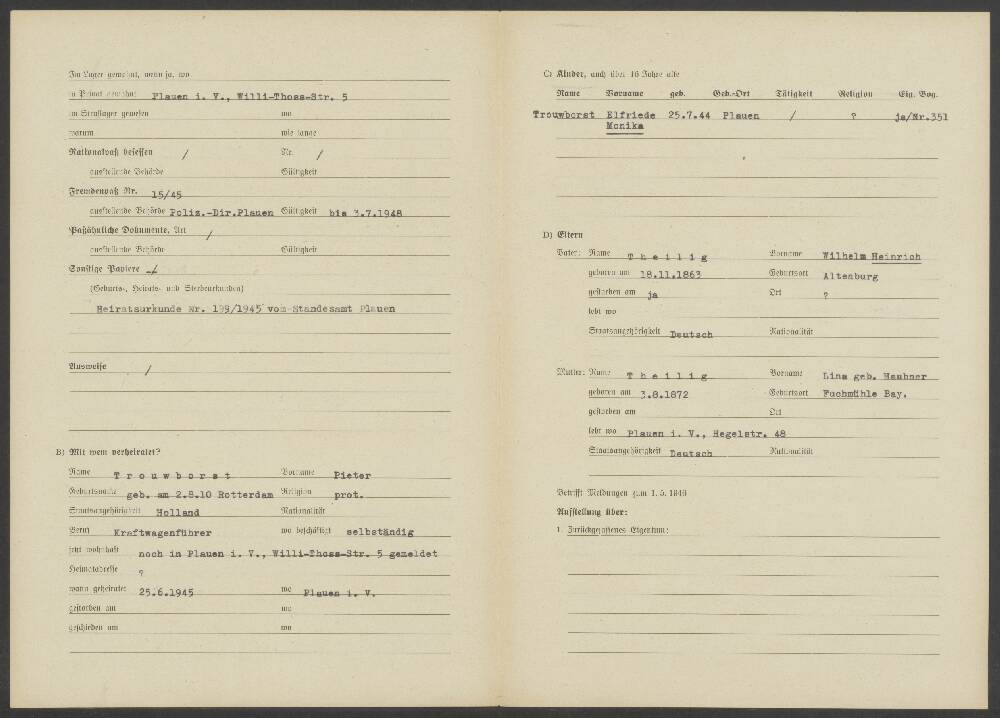 Im Lager gewohnt, wenn ja, wo
in Privat gewohnt Plauen i. V., Willi-Thoss-Str. 5
im Straflager gewesen wo
warum wie lange
Nationalpaß besessen / Nr. /
ausstellende Behörde Gültigkeit
Fremdenpaß Nr. 15/45
ausstellende Behörde Poliz.-Dir.Plauen Gültigkeit bis 3.7.1948
Paßähnliche Dokumente, Art /
ausstellende Behörde Gültigkeit
Sonstige Papiere ./.
(Geburts-, Heirats- und Sterbeurkunden)
Heiratsurkunde Nr. 199/1945 vom Standesamt Plauen
Ausweise /
B) Mit wem verheiratet?
Name Trouwborst Vorname Pieter
Geburtsname geb. am 2.8.10 Rotterdam Religion prot.
Staatsangehörigkeit Holland Nationalität
Beruf Kraftwagenführer wo beschäftigt selbständig
jetzt wohnhaft noch in Plauen i. V., Willi-Thoss-Str. 5 gemeldet
Heimatadresse ?
wann geheiratet 25.6.1945 wo Plauen i. V.
gestorben am wo
geschieden am wo
C) Kinder, auch über 16 Jahre alte
Name Vorname geb. Geb.-Ort Tätigkeit Religion Eig. Bog.
Trouwborst Elfriede 25.7.44 Plauen / ? ja/Nr.351
Monika
D) Eltern
Vater: Name Theilig Vorname Wilhelm Heinrich
geboren am 18.11.1863 Geburtsort Altenburg
gestorben am ja Ort ?
lebt wo
Staatsangehörigkeit Deutsch Nationalität
Mutter: Name Theilig Vorname Lina geb. Haubner
geboren am 3.8.1872 Geburtsort Fuchmühle Bay.
gestorben am Ort
lebt wo Plauen i. V., Hegelstr. 48
Staatsangehörigkeit Deutsch Nationalität
Betrifft Meldungen zum 1. 5. 1949
Aufstellung über:
1. Zurückgelassenes Eigentum: